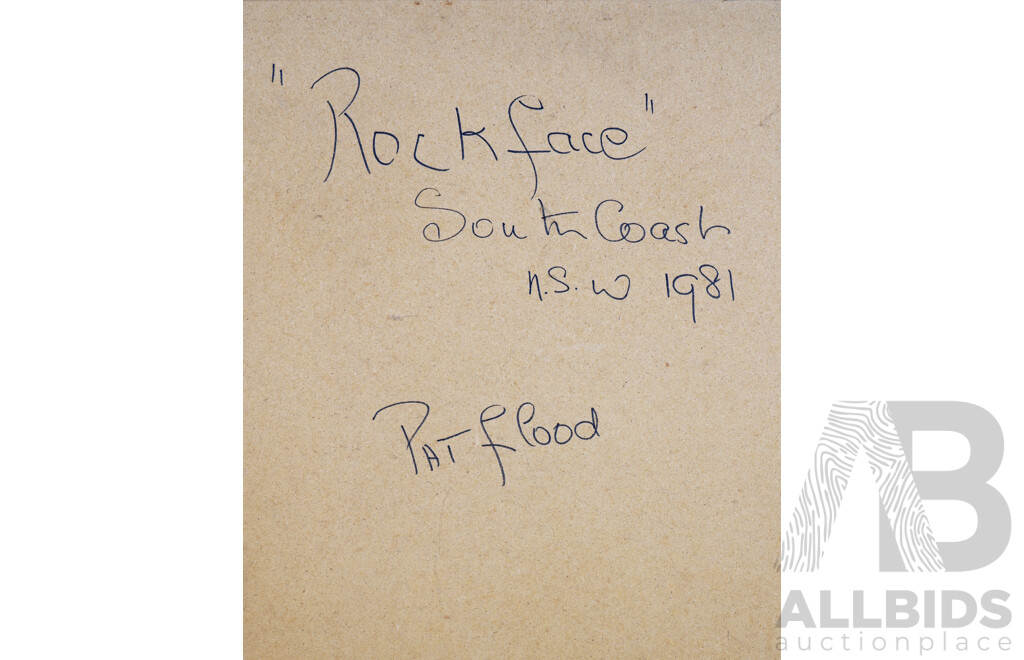 "Rockface"
South Coast
N.S.W 1981
PAT flood
AB
ALLBIDS
auctionplace